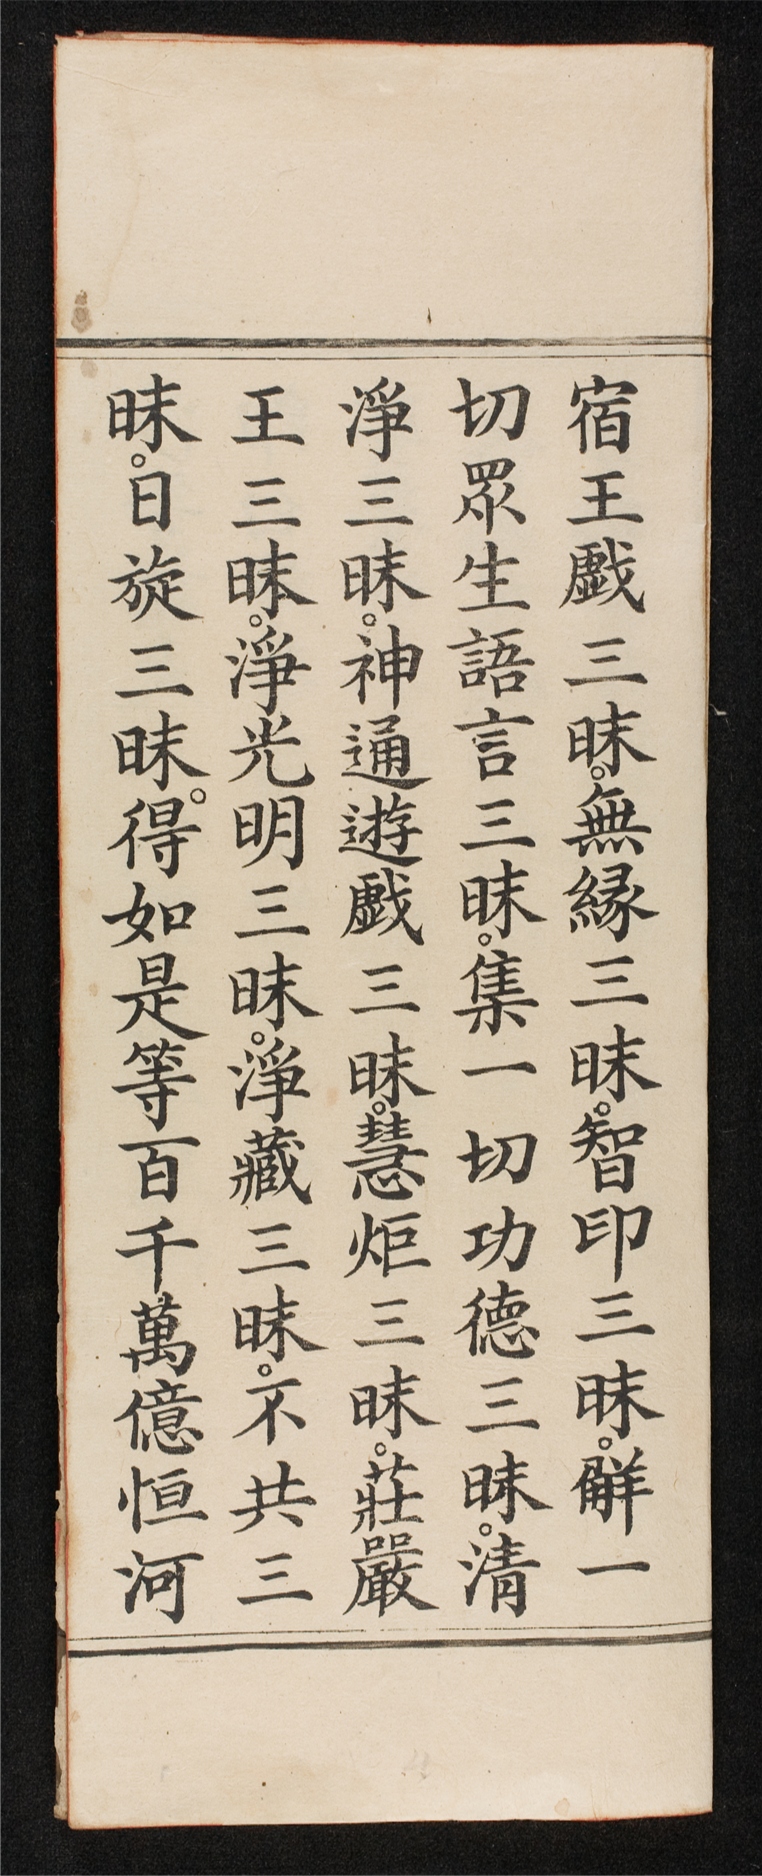 宿王戱三昧。無縁三昧。智印三昧。觧一
切眾生語言三昧。集一切功德三昧。清
淨三昧。神通遊戱三昧。慧炬三昧。莊嚴
王三昧。淨光明三昧。淨藏三昧。不共三
昧。日旋三昧。得如是等百千萬億恒河